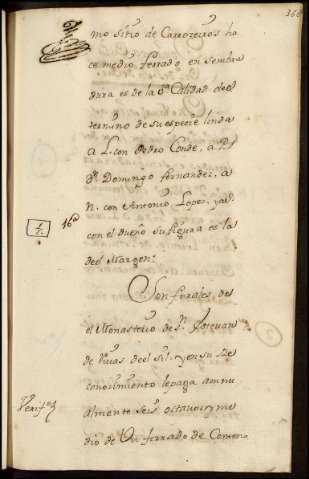 366
mo sitio de Carrozeiros ha
ce medio ferrado en sembra
dura es de la 6ª Calidad del
termino de su especie linda
a L. con Pedro Conde, a P.
Domingo fernandez, a
N. con Antonio Lopez, y a S.
con el dueño su figura es la
del Margen.
16ª
Son forales, del
el Monasterio de Sn. Estevan
de Rivas del Sil, y en su Re
conocimiento le paga annu
almente seis octavos y me
dio de Un ferrado de Centeno